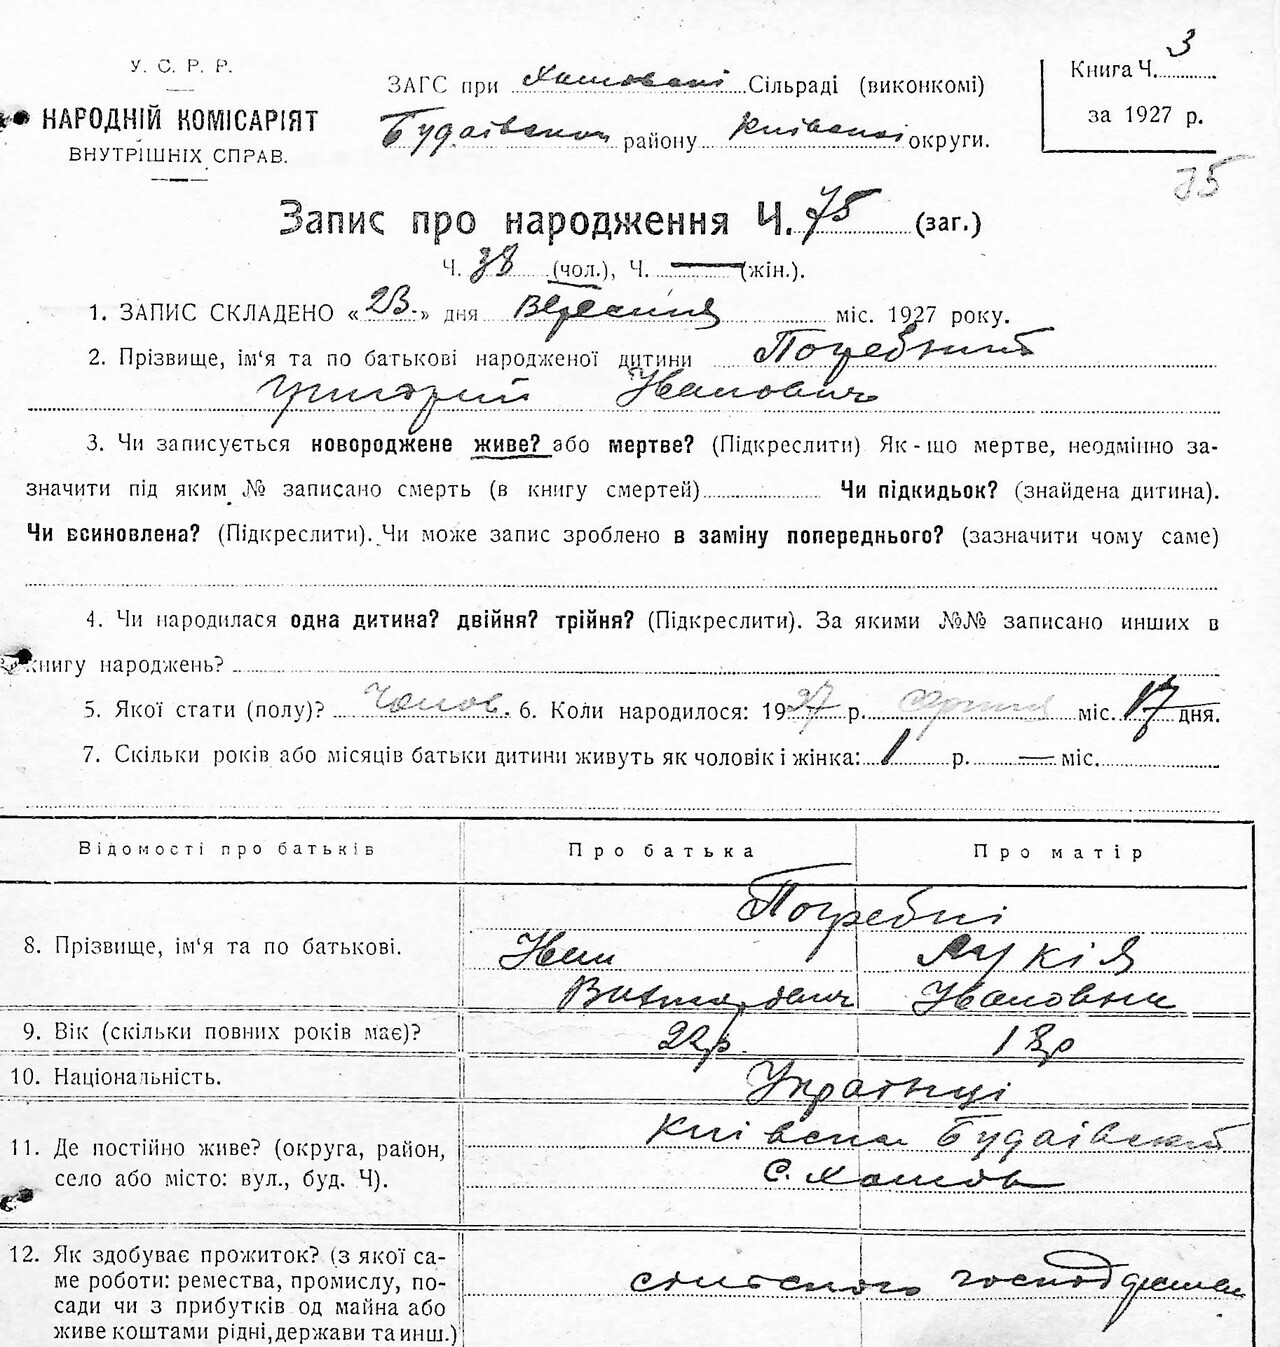 3
У. С. Р. Р.
НАРОДНІЙ КОМІСАРІЯТ
ВНУТРІШНІХ СПРАВ.
ЗАГС при Хотовські Сільраді (виконкомі)
Будаївськом району Київської округи.
Книга Ч.
за 1927 р.
75
Запис про народження Ч. 75 (заг.)
Ч. 38 (чол.), Ч. — (жін.).
1. ЗАПИС СКЛАДЕНО « 23. » дня Вересня міс. 1927 року.
2. Прізвище, ім'я та по батькові народженої дитини Погребний
Григорій Іванович
3. Чи записується новороджене живе? або мертве? (Підкреслити) Як-що мертве, неодмінно за-
значити під яким № записано смерть (в книгу смертей) Чи підкидьок? (знайдена дитина).
Чи всиновлена? (Підкреслити). Чи може запис зроблено в заміну попереднього? (зазначити чому саме)
4. Чи народилася одна дитина? двійня? трійня? (Підкреслити). За якими №№ записано инших в
книгу народжень?
5. Якої стати (полу)? Чолов. 6. Коли народилося: 1927 р. серпня міс. 17 дня.
7. Скільки років або місяців батьки дитини живуть як чоловік і жінка: 1 р. — міс.
Відомості про батьків Про батька Про матір
Погребні
8. Прізвище, ім'я та по батькові. Иван Лукія
Ивановни
9. Вік (скільки повних років має)? 22р. 18р
10. Національність. Українці
11. Де постійно живе? (округа, район,
село або місто: вул., буд. Ч).
Київська Будаївский
с. Хотов
12. Як здобуває прожиток? (з якої са-
ме роботи: ремества, промислу, по-
сади чи з прибутків од майна або
живе коштами рідні, держави та инш.)
сільского